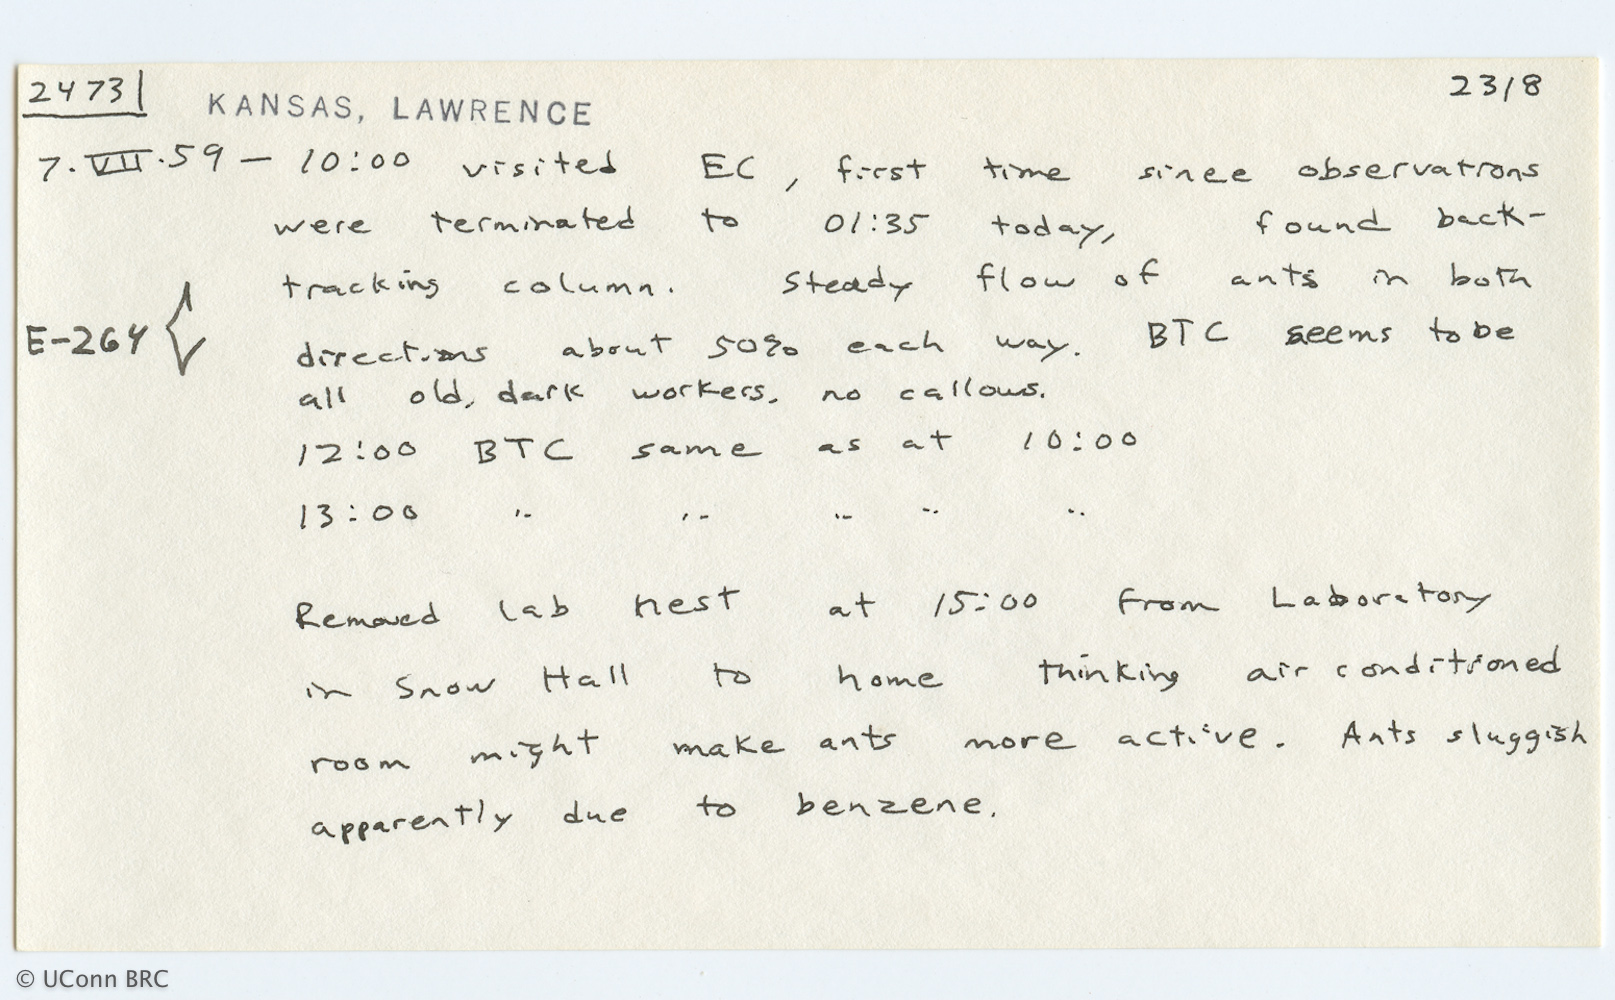 2473
KANSAS, LAWRENCE
2318
7.VII.59 — 10:00 visited EC, first time since observations
were terminated to 01:35 today, found back-
tracking column. Steady flow of ants in both
E-264
directions about 50% each way. BTC seems to be
all old, dark workers, no callows.
12:00 BTC same as at 10:00
13:00 " " " " "
Removed lab nest at 15:00 from Laboratory
in Snow Hall to home thinking air conditioned
room might make ants more active. Ants sluggish
apparently due to benzene.
© UConn BRC